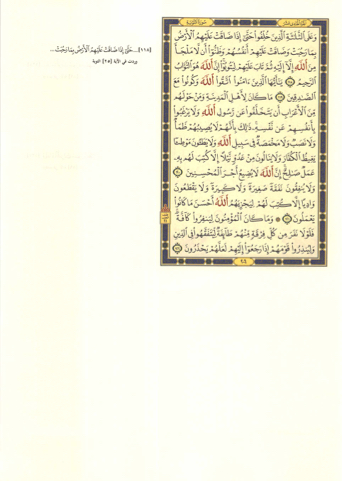 سورة التوبة
وَعَلَى ٱلثَّلَٰثَةِ ٱلَّذِينَ خُلِّفُوا۟ حَتَّىٰٓ إِذَا ضَاقَتْ عَلَيْهِمُ ٱلْأَرْضُ
بِمَا رَحُبَتْ وَضَاقَتْ عَلَيْهِمْ أَنفُسُهُمْ وَظَنُّوٓا۟ أَن لَّا مَلْجَأَ
مِنَ ٱللَّهِ إِلَّآ إِلَيْهِ ثُمَّ تَابَ عَلَيْهِمْ لِيَتُوبُوٓا۟ إِنَّ ٱللَّهَ هُوَ ٱلتَّوَّابُ
ٱلرَّحِيمُ يَٰٓأَيُّهَا ٱلَّذِينَ ءَامَنُوا۟ ٱتَّقُوا۟ ٱللَّهَ وَكُونُوا۟ مَعَ
ٱلصَّٰدِقِينَ مَا كَانَ لِأَهْلِ ٱلْمَدِينَةِ وَمَنْ حَوْلَهُم
مِّنَ ٱلْأَعْرَابِ أَن يَتَخَلَّفُوا۟ عَن رَّسُولِ ٱللَّهِ وَلَا يَرْغَبُوا۟
بِأَنفُسِهِمْ عَن نَّفْسِهِۦ ذَٰلِكَ بِأَنَّهُمْ لَا يُصِيبُهُمْ ظَمَأٌ
وَلَا نَصَبٌ وَلَا مَخْمَصَةٌ فِى سَبِيلِ ٱللَّهِ وَلَا يَطَـُٔونَ مَوْطِئًا
يَغِيظُ ٱلْكُفَّارَ وَلَا يَنَالُونَ مِنْ عَدُوٍّ نَّيْلًا إِلَّا كُتِبَ لَهُم بِهِۦ
عَمَلٌ صَٰلِحٌ إِنَّ ٱللَّهَ لَا يُضِيعُ أَجْرَ ٱلْمُحْسِنِينَ
وَلَا يُنفِقُونَ نَفَقَةً صَغِيرَةً وَلَا كَبِيرَةً وَلَا يَقْطَعُونَ
وَادِيًا إِلَّا كُتِبَ لَهُمْ لِيَجْزِيَهُمُ ٱللَّهُ أَحْسَنَ مَا كَانُوا۟
يَعْمَلُونَ وَمَا كَانَ ٱلْمُؤْمِنُونَ لِيَنفِرُوا۟ كَآفَّةً
فَلَوْلَا نَفَرَ مِن كُلِّ فِرْقَةٍ مِّنْهُمْ طَآئِفَةٌ لِّيَتَفَقَّهُوا۟ فِى ٱلدِّينِ
وَلِيُنذِرُوا۟ قَوْمَهُمْ إِذَا رَجَعُوٓا۟ إِلَيْهِمْ لَعَلَّهُمْ يَحْذَرُونَ
[١١٨] ...حَتَّىٰٓ إِذَا ضَاقَتْ عَلَيْهِمُ ٱلْأَرْضُ بِمَا رَحُبَتْ ...
وردت في الآية [٢٥] التوبة